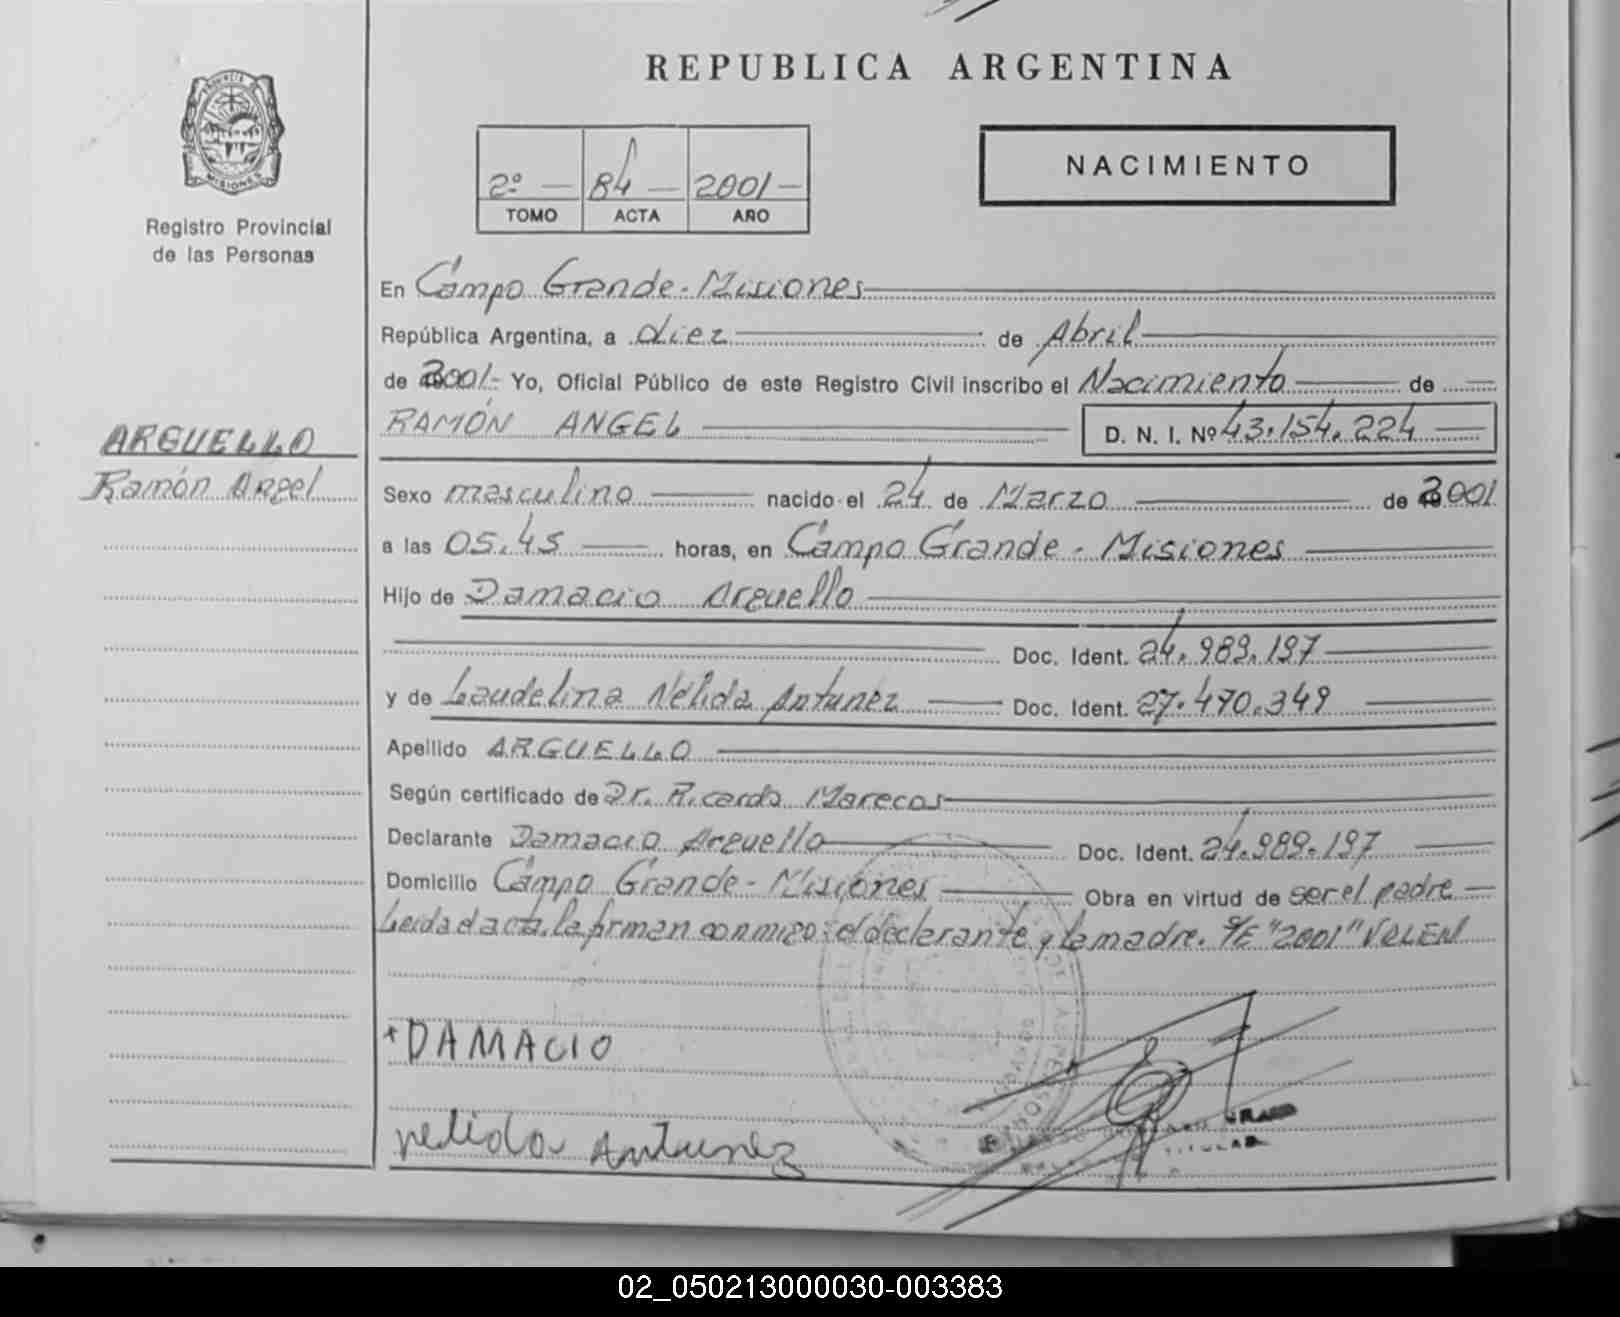 REPUBLICA ARGENTINA
MISIONES
Registro Provincial
de las Personas
2º — 84 — 2001 —
TOMO ACTA AÑO
NACIMIENTO
En Campo Grande - Misiones
República Argentina, a diez de Abril
de 2001.- Yo, Oficial Público de este Registro Civil inscribo el Nacimiento de
RAMÓN ANGEL D. N. I. Nº 43.154.224
ARGUELLO
Ramón Angel
Sexo masculino nacido el 24 de Marzo de 2001
a las 05.45 horas, en Campo Grande - Misiones
Hijo de Damacio Arguello
Doc. Ident. 24.989.197
y de Laudelina Nélida Antunez Doc. Ident. 27.470.349
Apellido ARGUELLO
Según certificado de Dr. Ricardo Marecos
Declarante Damacio Arguello Doc. Ident. 24.989.197
Domicilio Campo Grande - Misiones Obra en virtud de ser el padre
Leida el acta, la firman conmigo: el declarante y la madre. S/E "2001" VALEN
+DAMACIO
nelida Antunez
TITULAR
02_050213000030-003383